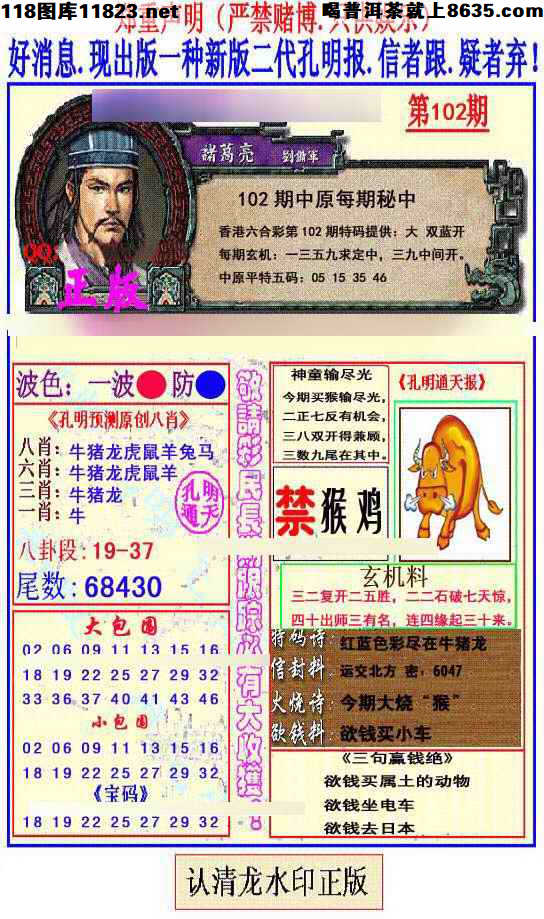 118图库11823.net
喝普洱茶就上8635.com
郑重声明（严禁赌博.只供娱乐）
好消息.现出版一种新版二代孔明报.信者跟.疑者弃！
第102期
諸葛亮 劉備軍
102期中原每期秘中
香港六合彩第102期特码提供：大 双蓝开
每期玄机：一三五九求定中，三九中间开。
中原平特五码：05 15 35 46
正版
波色：一波 防
《孔明预测原创八肖》
八肖：牛猪龙虎鼠羊兔马
六肖：牛猪龙虎鼠羊
三肖：牛猪龙
一肖：牛
孔明
通天
八卦段：19-37
尾数：68430
大包围
02 06 09 11 13 15 16
18 19 22 25 27 29 32
33 36 37 40 41 43 46
小包围
02 06 09 11 13 15 16
18 19 22 25 27 29 32
《宝码》
18 19 22 25 27 29 32
敬請彩民長期跟踪必有大收獲
神童输尽光
今期买猴输尽光，
二正七反有机会，
三八双开得兼顾，
三数九尾在其中。
禁猴鸡
《孔明通天报》
玄机料
三二复开二五胜，二二石破七天惊，
四十出师三有名，连四缘起三十来。
特码诗：红蓝色彩尽在牛猪龙
信封料：运交北方 密：6047
火烧诗：今期大烧“猴”
欲钱料：欲钱买小车
《三句赢钱绝》
欲钱买属土的动物
欲钱坐电车
欲钱去日本
认清龙水印正版